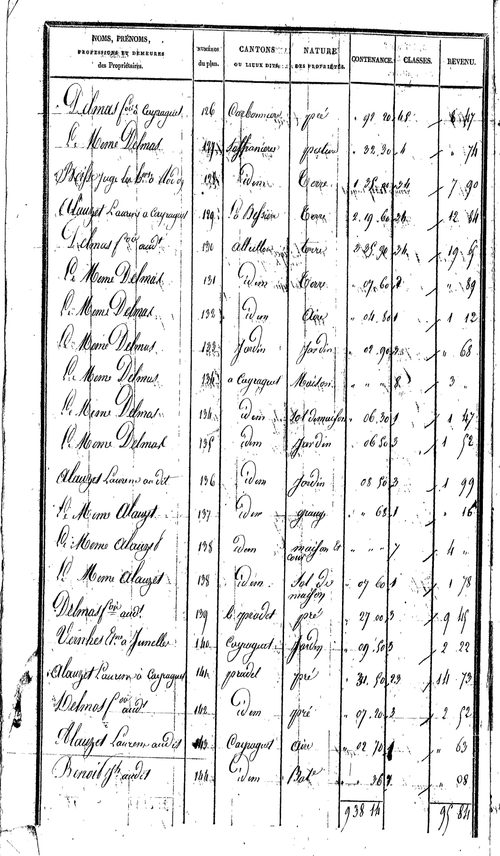 NOMS, PRÉNOMS, PROFESSIONS ET DEMEURES des Propriétaires. NUMÉROS du plan. CANTONS OU LIEUX DITS. NATURE DES PROPRIÉTÉS. CONTENANCE. CLASSES. REVENU.
Delmas fois à Cayraguet 126 Carbonniere pré 92 20 4 5 8 47
Le Meme Delmas 127 patur 32 30 4 " 74
128 idem Terre 1 2 4 7 90
Alauzet Laurens a Cayraguet 129 La Bessiere Terre 2 19 60 12 84
Delmas fois audt 130 Terre 3 4 19
Le Meme Delmas 131 idem Terre 07 60 2 " 89
Le Meme Delmas 132 idem Aire 04 80 1 1 12
Le Meme Delmas 133 Jardin Jardin 02 90 3 " 68
Le Meme Delmas 134 a Cayraguet Maison " " " 8 3 "
Le Meme Delmas 134 idem Sol de maison 06 30 1 1 47
Le Meme Delmas 135 idem Jardin 06 50 3 1 52
Alauzet Laurens audit 136 idem Jardin 08 50 3 1 99
Le Meme Alauzet 137 idem grange " 68 1 " 16
Le Meme Alauzet 138 idem maison et cour " " " 7 4 "
Le Meme Alauzet 138 idem Sol de maison 07 60 1 1 78
Delmas fois audt 139 le pradet pré 27 00 3 9 45
Vernhes à Jumelle 140 Cayraguet Jardin 09 50 3 2 22
Alauzet Laurens à Cayraguet 141 pradet pré 31 50 2 3 14 73
Delmas fois audt 142 idem pré 07 20 3 2 52
Alauzet Laurens audit 143 Cayraguet Aire 02 70 1 " 63
Benoit Jh audit 144 idem " 36 " 08
9 38 14 95 84